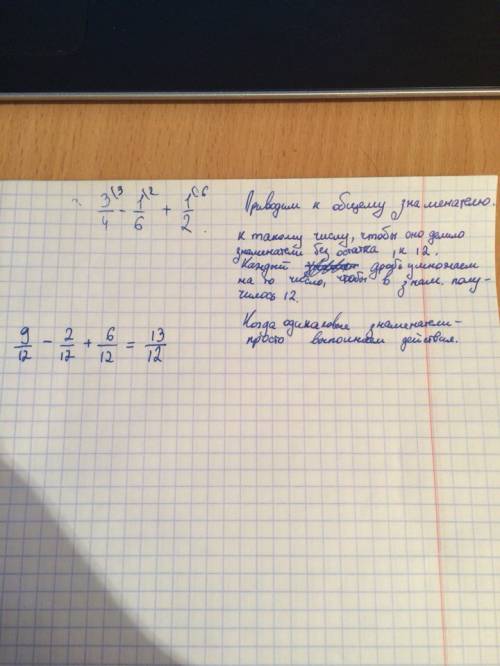 3/4 (3 - 1/6 (2 + 1/2 (6
Приводим к общему знаменателю.
к такому числу, чтобы оно делило
знаменатели без остатка, к 12.
Каждый дробь умножаем
на то число, чтобы в знам. полу-
чилось 12.
Когда одинаковые знаменатели -
просто выполняем действия.
9/12 - 2/12 + 6/12 = 13/12